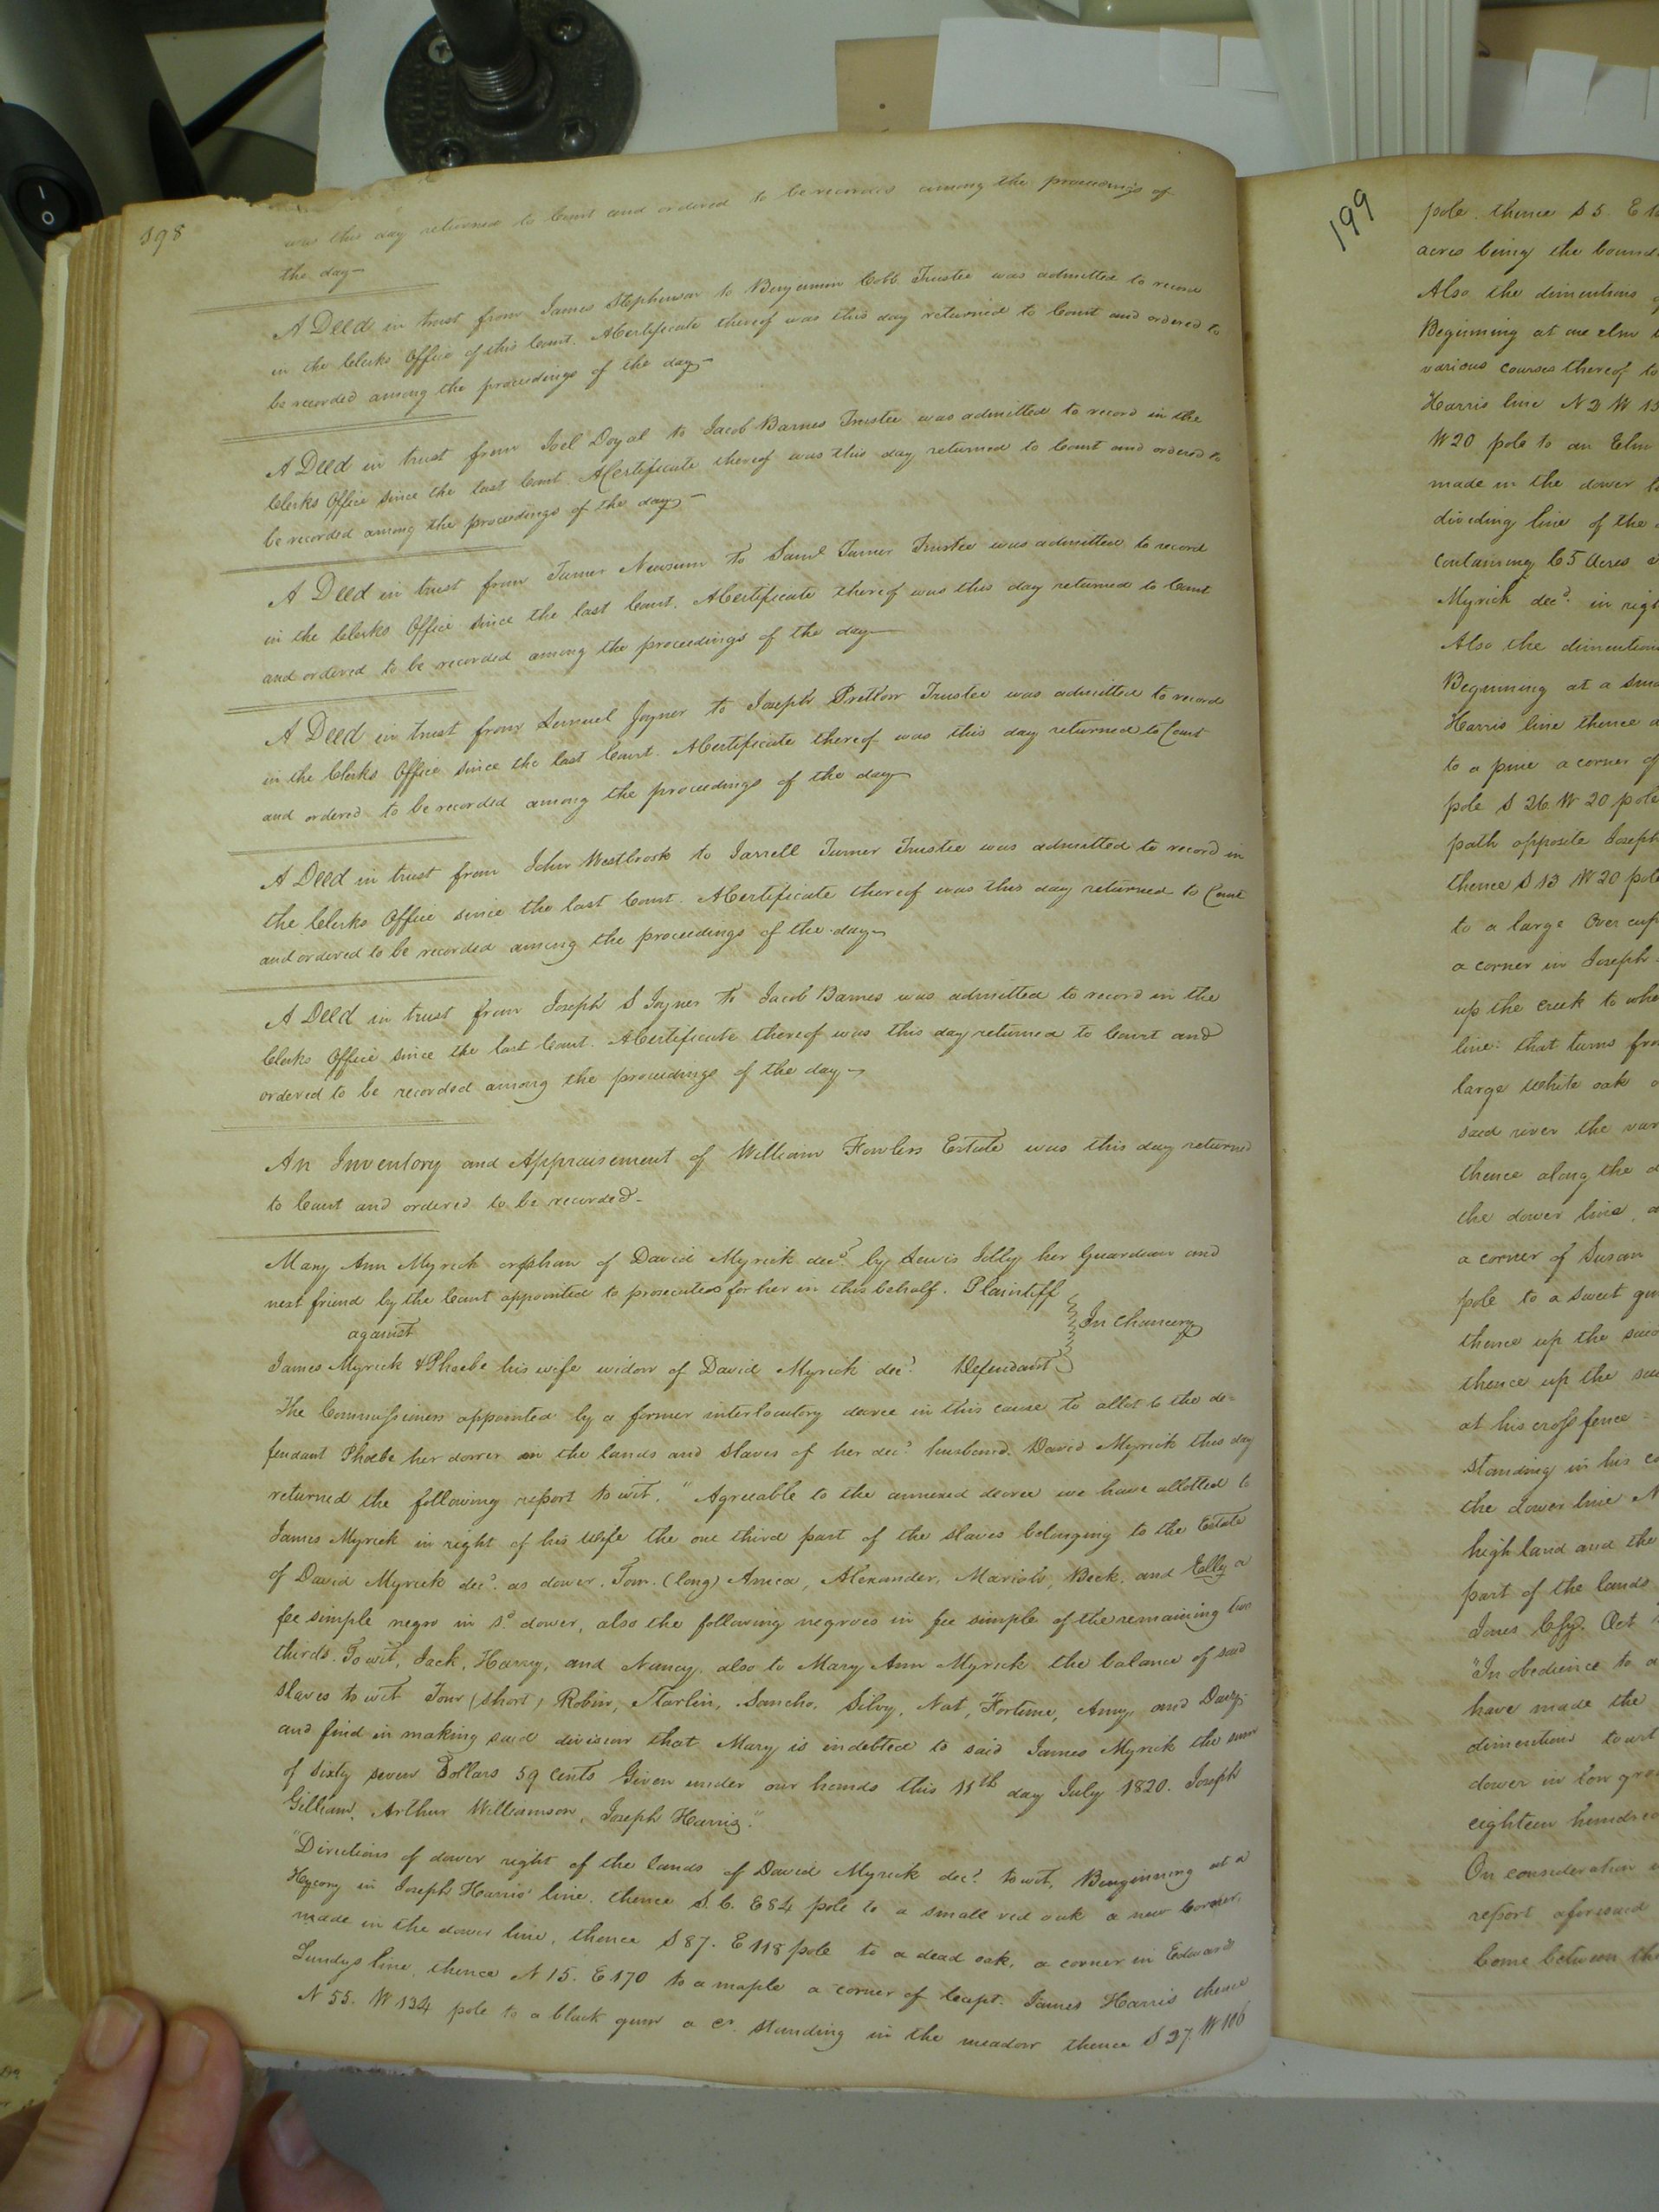 198
was this day returned to Court and ordered to be recorded among the proceedings of
the day—
A Deed in trust from James Stephenson to Benjamin Cobb Trustee was admitted to record
in the Clerks Office of this Court. A Certificate thereof was this day returned to Court and ordered to
be recorded among the proceedings of the day—
A Deed in trust from Joel Doyal to Jacob Barnes Trustee was admitted to record in the
Clerks Office since the last Court. A Certificate thereof was this day returned to Court and ordered to
be recorded among the proceedings of the day—
A Deed in trust from Turner Newsum to Saml Turner Trustee was admitted to record
in the Clerks Office since the last Court. A Certificate thereof was this day returned to Court
and ordered to be recorded among the proceedings of the day—
A Deed in trust from Lemuel Joyner to Joseph Pretlow Trustee was admitted to record
in the Clerks Office since the last Court. A Certificate thereof was this day returned to Court
and ordered to be recorded among the proceedings of the day
A Deed in trust from John Westbrook to Jarrell Turner Trustee was admitted to record in
the Clerks Office since the last Court. A Certificate thereof was this day returned to Court
and ordered to be recorded among the proceedings of the day—
A Deed in trust from Joseph S Joyner to Jacob Barnes was admitted to record in the
Clerks Office since the last Court. A Certificate thereof was this day returned to Court and
ordered to be recorded among the proceedings of the day—
An Inventory and Appraisement of William Fowlers Estate was this day returned
to Court and ordered to be recorded—
Mary Ann Myrick orphan of David Myrick decd. by Lewis her Guardian and
next friend by the Court appointed to prosecute for her in this behalf. Plaintiff
against In Chancery
James Myrick & Phoebe his wife widow of David Myrick decd. Defendant
The Commissioners appointed by a former interlocutory decree in this cause to allot to the de=
fendant Phoebe her dower in the lands and slaves of her decd. husband David Myrick this day
returned the following report to wit. "Agreeable to the annexed decree we have allotted to
James Myrick in right of his wife the one third part of the slaves belonging to the Estate
of David Myrick decd. as dower. Tom (long) Amea, Alexander, Mariah, Beck, and Edly a
fee simple negro in sd. dower, also the following negroes in fee simple of the remaining two
thirds. To wit, Jack, Harry, and Nancy, also to Mary Ann Myrick the balance of said
slaves to wit Tom (short) Robin, Starlin, Sancho, Silvy, Nat, Fortune, Amy, and Davy
and find in making said division that Mary is indebted to said James Myrick the sum
of Sixty seven Dollars 59 cents Given under our hands this 11th day July 1820. Joseph
Gilliam, Arthur Williamson, Joseph Harris."
"Directions of dower right of the lands of David Myrick decd. to wit, Bengining at a
Hycory in Joseph Harris' line. thence S. 6. E 84 pole to a small red oak a new corner,
made in the dower line, thence S 87. E 118 pole to a dead oak, a corner in Edward
Lundys line thence N 15. E 170 to a maple a corner of Capt. James Harris thence
N 55. W 134 pole to a black gum a cr. standing in the meadow thence S 37 W 106
199
pole. thence S 5. E
acres being the
Also the dimentions
Beginning at one elm
various courses thereof to
Harris line N 2 W
W 20 pole to an Elm
made in the dower
dividing line of the
containing 65 Acres
Myrick decd. in
Also the
Beginning at a
Harris line thence
to a pine a corner of
pole S 26 W 20 pole
path opposite Joseph
thence S 13 W 20 pole
to a large Over cup
a corner in Joseph
up the creek to
line that turns
large White oak
said river the
thence along the
the dower line,
a corner of Susan
pole to a sweet
thence up the said
thence up the
at his cross fence
standing in his
the dower line N
high land and the
part of the lands
Jones Esqr. Oct
"In obedience to a
have made the
dimentions to wit
dower in low
eighteen hundred
On consideration
report aforesaid
come between the